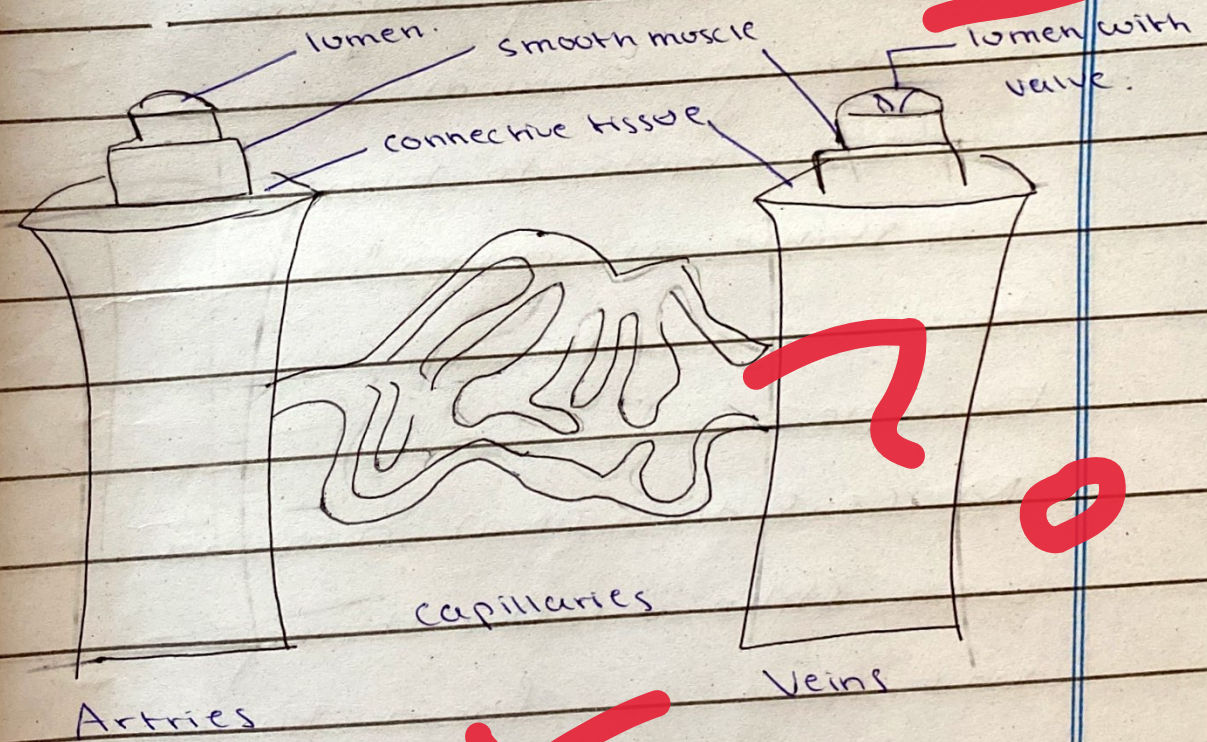 lumen.
smooth muscle
lumen with
valve.
connective tissue
capillaries
Veins
Artries